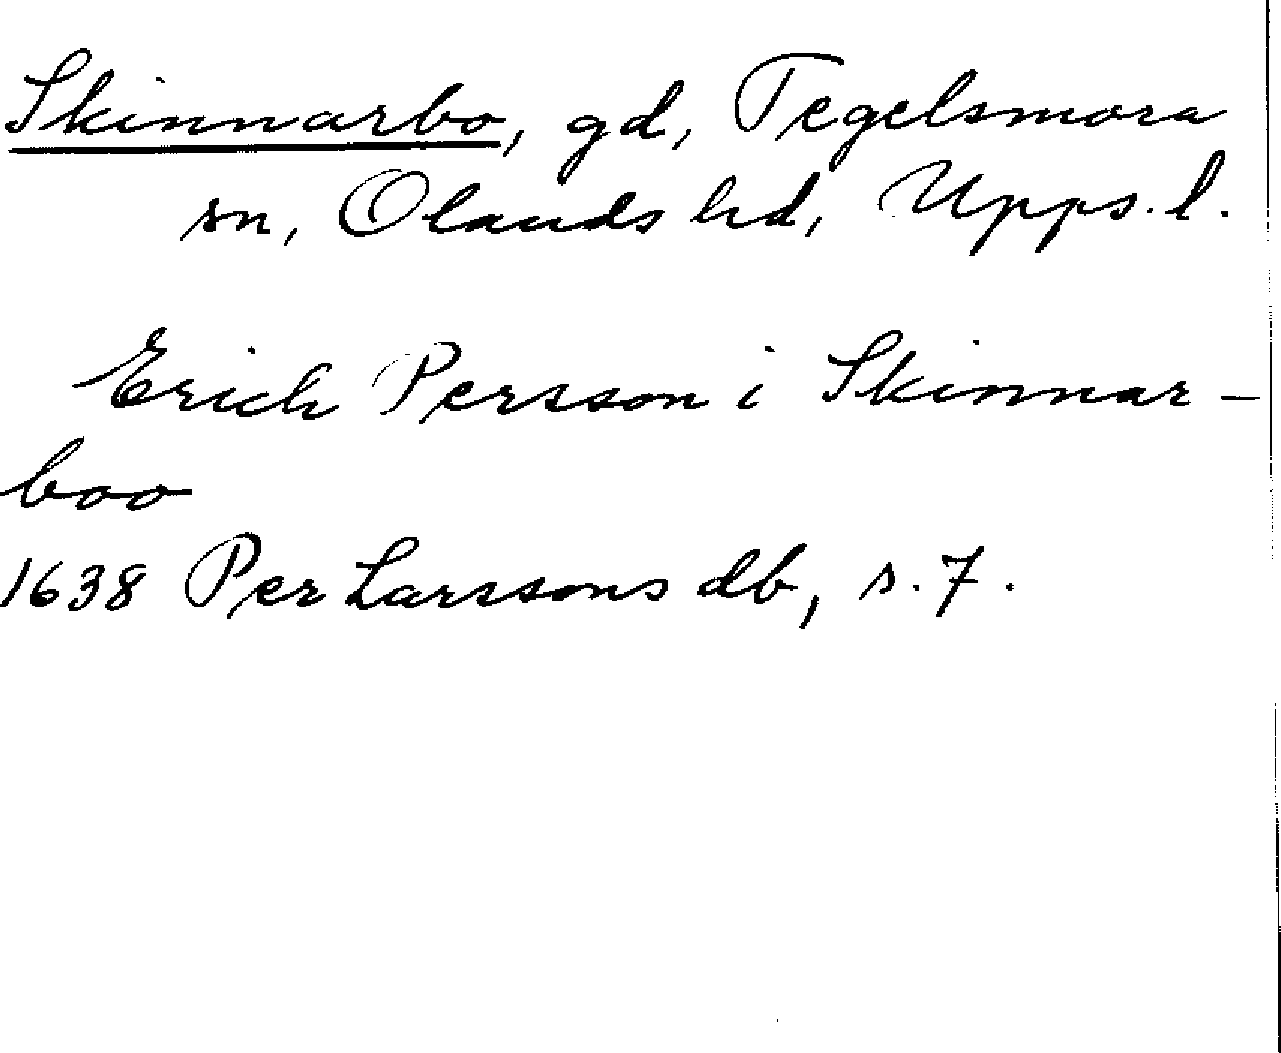 Skinnarbo, gd, Tegelsmora
sn, Olands hd, Upps. l.
Erich Persson i Skinnar-
boo
1638 Per Larssons db, s. 7.